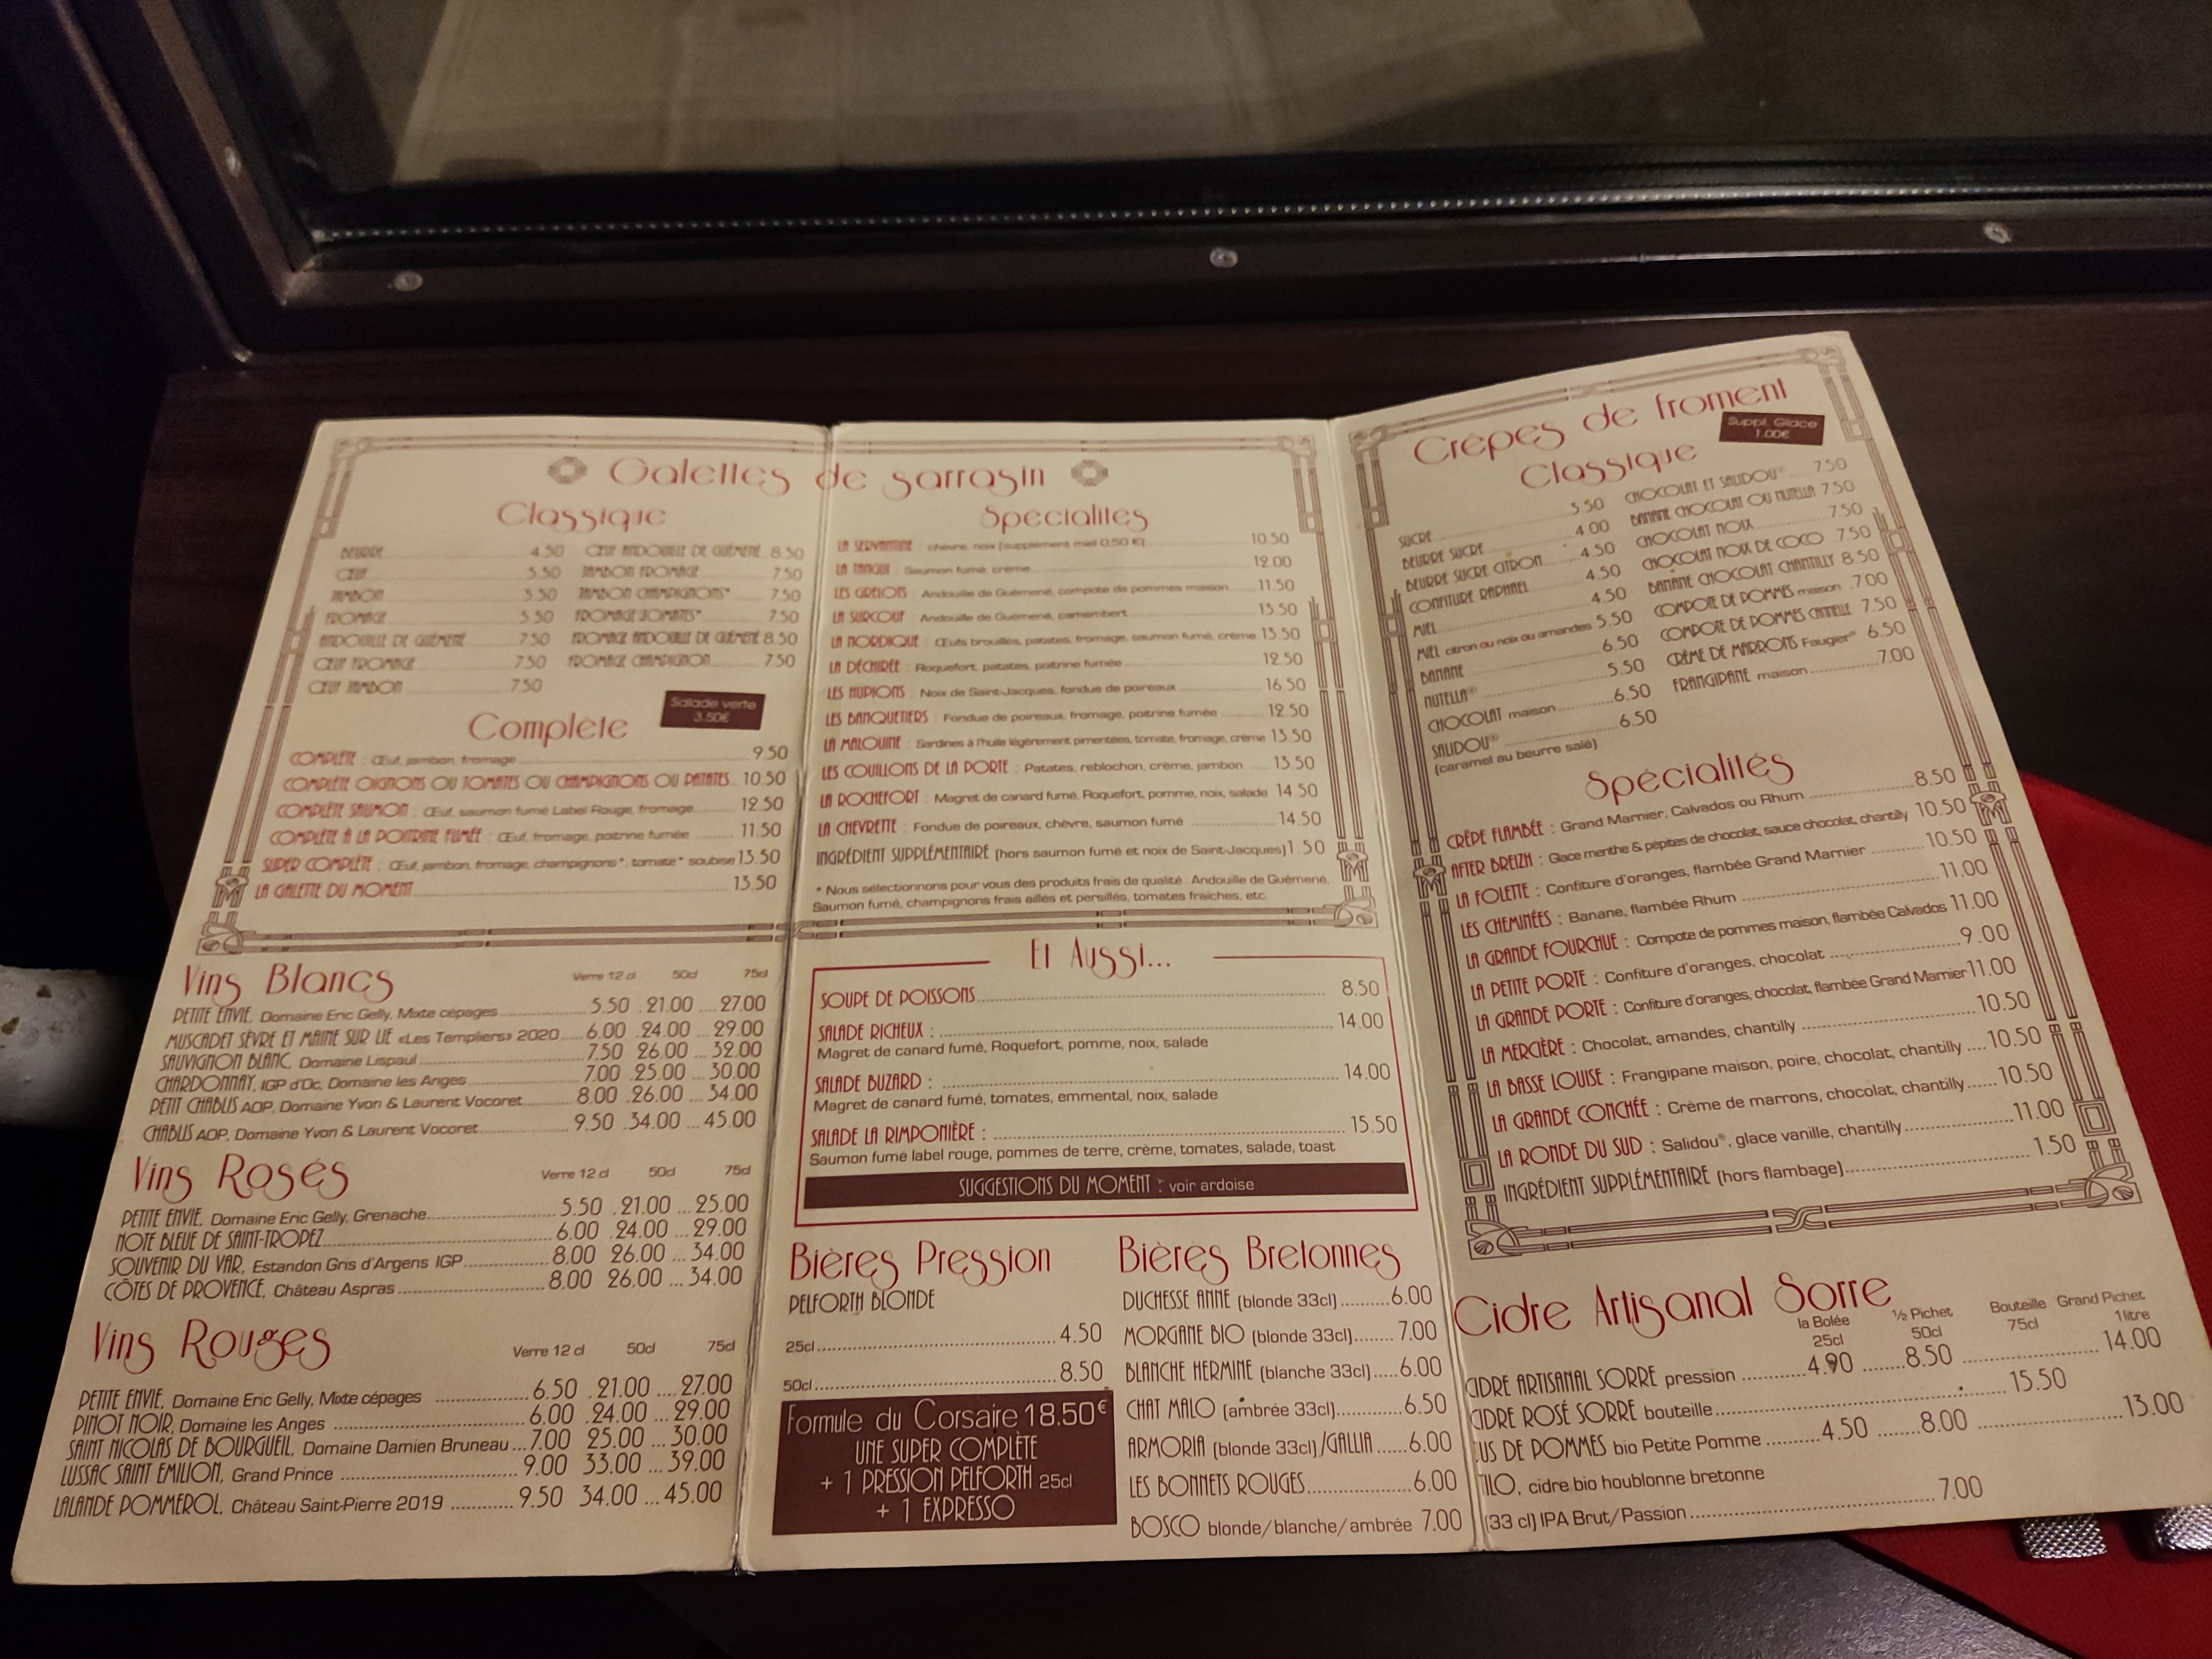 Galettes de sarrasin
Classique
BEURRE 4.50
ŒUF 5.50
JAMBON 5.50
FROMAGE 5.50
ANDOUILLE DE GUÉMENÉ 7.50
ŒUF FROMAGE 7.50
ŒUF JAMBON 7.50
ŒUF ANDOUILLE DE GUÉMENÉ 8.50
JAMBON FROMAGE 7.50
JAMBON CHAMPIGNONS* 7.50
FROMAGE TOMATES* 7.50
FROMAGE ANDOUILLE DE GUÉMENÉ 8.50
FROMAGE CHAMPIGNON 7.50
Salade verte
3.50€
Complète
COMPLÈTE : Œuf, jambon, fromage 9.50
COMPLÈTE OIGNONS OU TOMATES OU CHAMPIGNONS OU PATATES 10.50
COMPLÈTE SAUMON : Œuf, saumon fumé Label Rouge, fromage 12.50
COMPLÈTE À LA POITRINE FUMÉE : Œuf, fromage, poitrine fumée 11.50
SUPER COMPLÈTE : Œuf, jambon, fromage, champignons*, tomate* soubise 13.50
LA GALETTE DU MOMENT 13.50
Spécialités
LA SERVANTINE : chèvre, noix (supplément miel 0,50 €) 10.50
LA TANGUI : Saumon fumé, crème 12.00
LES GRELOTS : Andouille de Guémené, compote de pommes maison 11.50
LA SURCOUF : Andouille de Guémené, camembert 13.50
LA NORDIQUE : Œufs brouillés, patates, fromage, saumon fumé, crème 13.50
LA DÉCHIRÉE : Roquefort, patates, poitrine fumée 12.50
LES HUPIONS : Noix de Saint-Jacques, fondue de poireaux 16.50
LES BANQUETIERS : Fondue de poireaux, fromage, poitrine fumée 12.50
LA MALOUINE : Sardines à l'huile légèrement pimentées, tomate, fromage, crème 13.50
LES COUILLONS DE LA PORTE : Patates, reblochon, crème, jambon 13.50
LA ROCHEFORT : Magret de canard fumé, Roquefort, pomme, noix, salade 14.50
LA CHEVRETTE : Fondue de poireaux, chèvre, saumon fumé 14.50
INGRÉDIENT SUPPLÉMENTAIRE (hors saumon fumé et noix de Saint-Jacques) 1.50
* Nous sélectionnons pour vous des produits frais de qualité : Andouille de Guémené,
Saumon fumé, champignons frais aillés et persillés, tomates fraîches, etc.
Vins Blancs
Verre 12 cl 50cl 75cl
PETITE ENVIE, Domaine Eric Gelly, Mixte cépages 5.50 21.00 27.00
MUSCADET SÈVRE ET MAINE SUR LIE «Les Templiers» 2020 6.00 24.00 29.00
SAUVIGNON BLANC, Domaine Lispaul 7.50 26.00 32.00
CHARDONNAY, IGP d'Oc, Domaine les Anges 7.00 25.00 30.00
PETIT CHABLIS AOP, Domaine Yvon & Laurent Vocoret 8.00 26.00 34.00
CHABLIS AOP, Domaine Yvon & Laurent Vocoret 9.50 34.00 45.00
Vins Rosés
Verre 12 cl 50cl 75cl
PETITE ENVIE, Domaine Eric Gelly, Grenache 5.50 21.00 25.00
NOTE BLEUE DE SAINT-TROPEZ 6.00 24.00 29.00
SOUVENIR DU VAR, Estandon Gris d'Argens IGP 8.00 26.00 34.00
CÔTES DE PROVENCE, Château Aspras 8.00 26.00 34.00
Vins Rouges
Verre 12 cl 50cl 75cl
PETITE ENVIE, Domaine Eric Gelly, Mixte cépages 6.50 21.00 27.00
PINOT NOIR, Domaine les Anges 6.00 24.00 29.00
SAINT NICOLAS DE BOURGUEIL, Domaine Damien Bruneau 7.00 25.00 30.00
LUSSAC SAINT EMILION, Grand Prince 9.00 33.00 39.00
LALANDE POMMEROL, Château Saint-Pierre 2019 9.50 34.00 45.00
Et Aussi...
SOUPE DE POISSONS 8.50
SALADE RICHEUX : 14.00
Magret de canard fumé, Roquefort, pomme, noix, salade
SALADE BUZARD : 14.00
Magret de canard fumé, tomates, emmental, noix, salade
SALADE LA RIMPONIÈRE : 15.50
Saumon fumé label rouge, pommes de terre, crème, tomates, salade, toast
SUGGESTIONS DU MOMENT : voir ardoise
Bières Pression
PELFORTH BLONDE
25cl 4.50
50cl 8.50
Formule du Corsaire 18.50€
UNE SUPER COMPLÈTE
+ 1 PRESSION PELFORTH 25cl
+ 1 EXPRESSO
Bières Bretonnes
DUCHESSE ANNE (blonde 33cl) 6.00
MORGANE BIO (blonde 33cl) 7.00
BLANCHE HERMINE (blanche 33cl) 6.00
CHAT MALO (ambrée 33cl) 6.50
ARMORIA (blonde 33cl)/GALLIA 6.00
LES BONNETS ROUGES 6.00
BOSCO blonde/blanche/ambrée 7.00
Crêpes de froment
Suppl. Glace
1.00€
Classique
SUCRE 3.50
BEURRE SUCRE 4.00
BEURRE SUCRE CITRON 4.50
CONFITURE RAPHAEL 4.50
MIEL 4.50
MIEL citron ou noix ou amandes 5.50
BANANE 6.50
NUTELLA® 5.50
CHOCOLAT maison 6.50
SALIDOU® 6.50
(caramel au beurre salé)
CHOCOLAT ET SALIDOU® 7.50
BANANE CHOCOLAT OU NUTELLA 7.50
CHOCOLAT NOIX 7.50
CHOCOLAT NOIX DE COCO 7.50
BANANE CHOCOLAT CHANTILLY 8.50
COMPOTE DE POMMES maison 7.00
COMPOTE DE POMMES CANNELLE 7.50
CRÈME DE MARRONS Faugier® 6.50
FRANGIPANE maison 7.00
Spécialités
CRÊPE FLAMBÉE : Grand Marnier, Calvados ou Rhum 8.50
AFTER BREIZH : Glace menthe & pépites de chocolat, sauce chocolat, chantilly 10.50
LA FOLETTE : Confiture d'oranges, flambée Grand Marnier 10.50
LES CHEMINÉES : Banane, flambée Rhum 11.00
LA GRANDE FOURCHUE : Compote de pommes maison, flambée Calvados 11.00
LA PETITE PORTE : Confiture d'oranges, chocolat 9.00
LA GRANDE PORTE : Confiture d'oranges, chocolat, flambée Grand Marnier 11.00
LA MERCIÈRE : Chocolat, amandes, chantilly 10.50
LA BASSE LOUISE : Frangipane maison, poire, chocolat, chantilly 10.50
LA GRANDE CONCHÉE : Crème de marrons, chocolat, chantilly 10.50
LA RONDE DU SUD : Salidou®, glace vanille, chantilly 11.00
INGRÉDIENT SUPPLÉMENTAIRE (hors flambage) 1.50
Cidre Artisanal Sorre
la Bolée 25cl ½ Pichet 50cl Bouteille 75cl Grand Pichet 1litre
CIDRE ARTISANAL SORRE pression 4.90 8.50 14.00
CIDRE ROSÉ SORRE bouteille 15.50
US DE POMMES bio Petite Pomme 4.50 8.00 13.00
ILO, cidre bio houblonne bretonne
(33 cl) IPA Brut/Passion 7.00